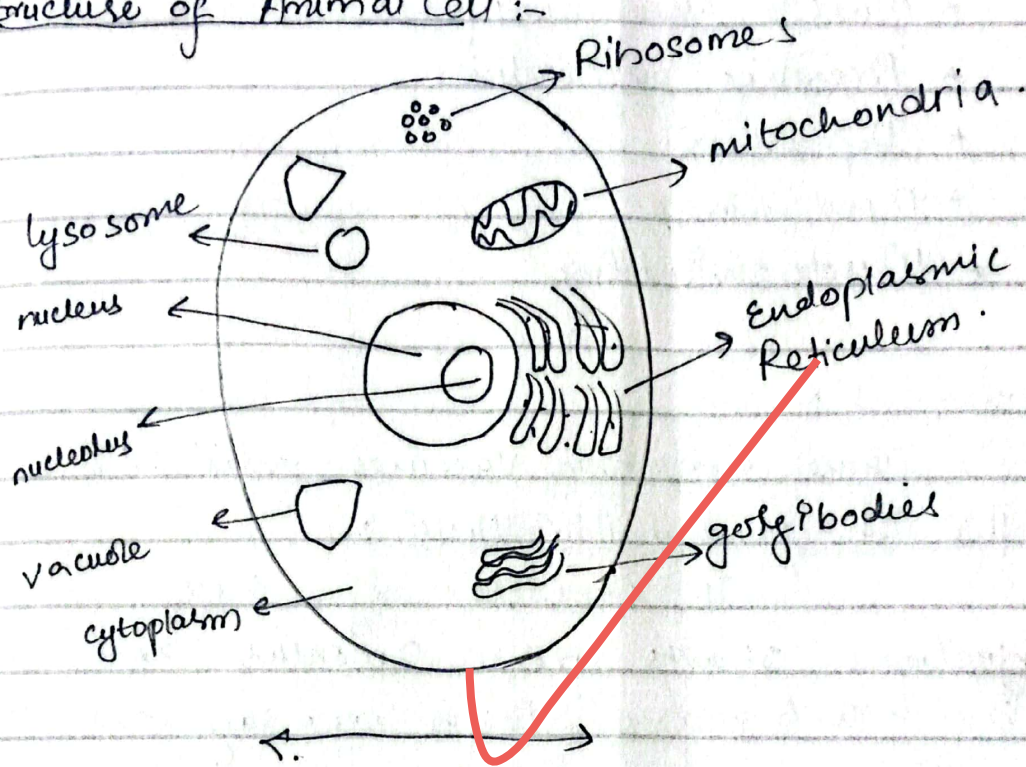 Structure of Animal Cell :-
Ribosomes
mitochondria.
lysosome
nucleus
Endoplasmic
Reticulum.
nucleolus
golgibodies
vacuole
cytoplasm